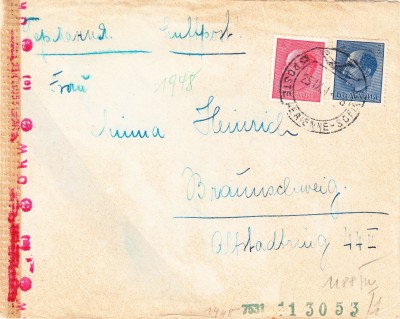 Германия. Luftpost.
1948
Frau
Heinrich
POSTE AERIENNE-SOFIA
Braunschweig.
Altstadtring 44 II
1948 7531 13053
OKW